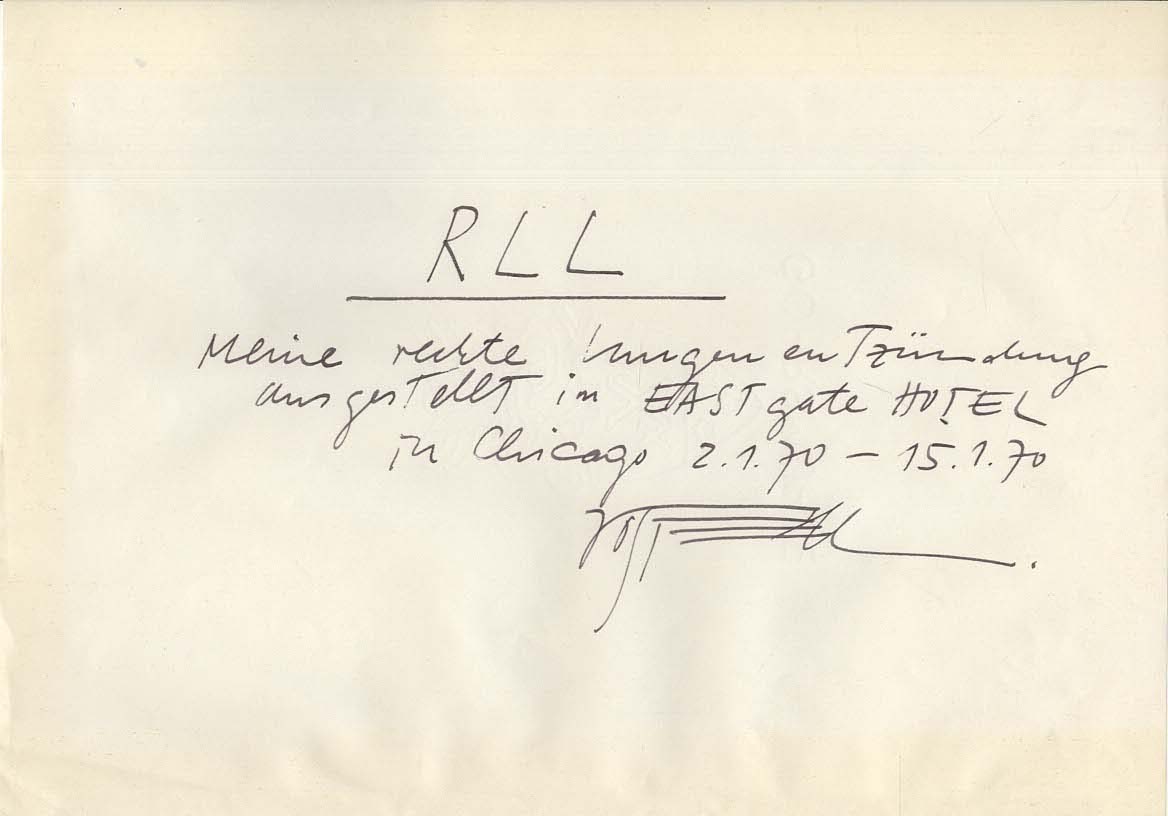 RLL
Meine rechte Lungenentzündung
ausgestellt im EASTgate HOTEL
in Chicago 2.1.70 – 15.1.70